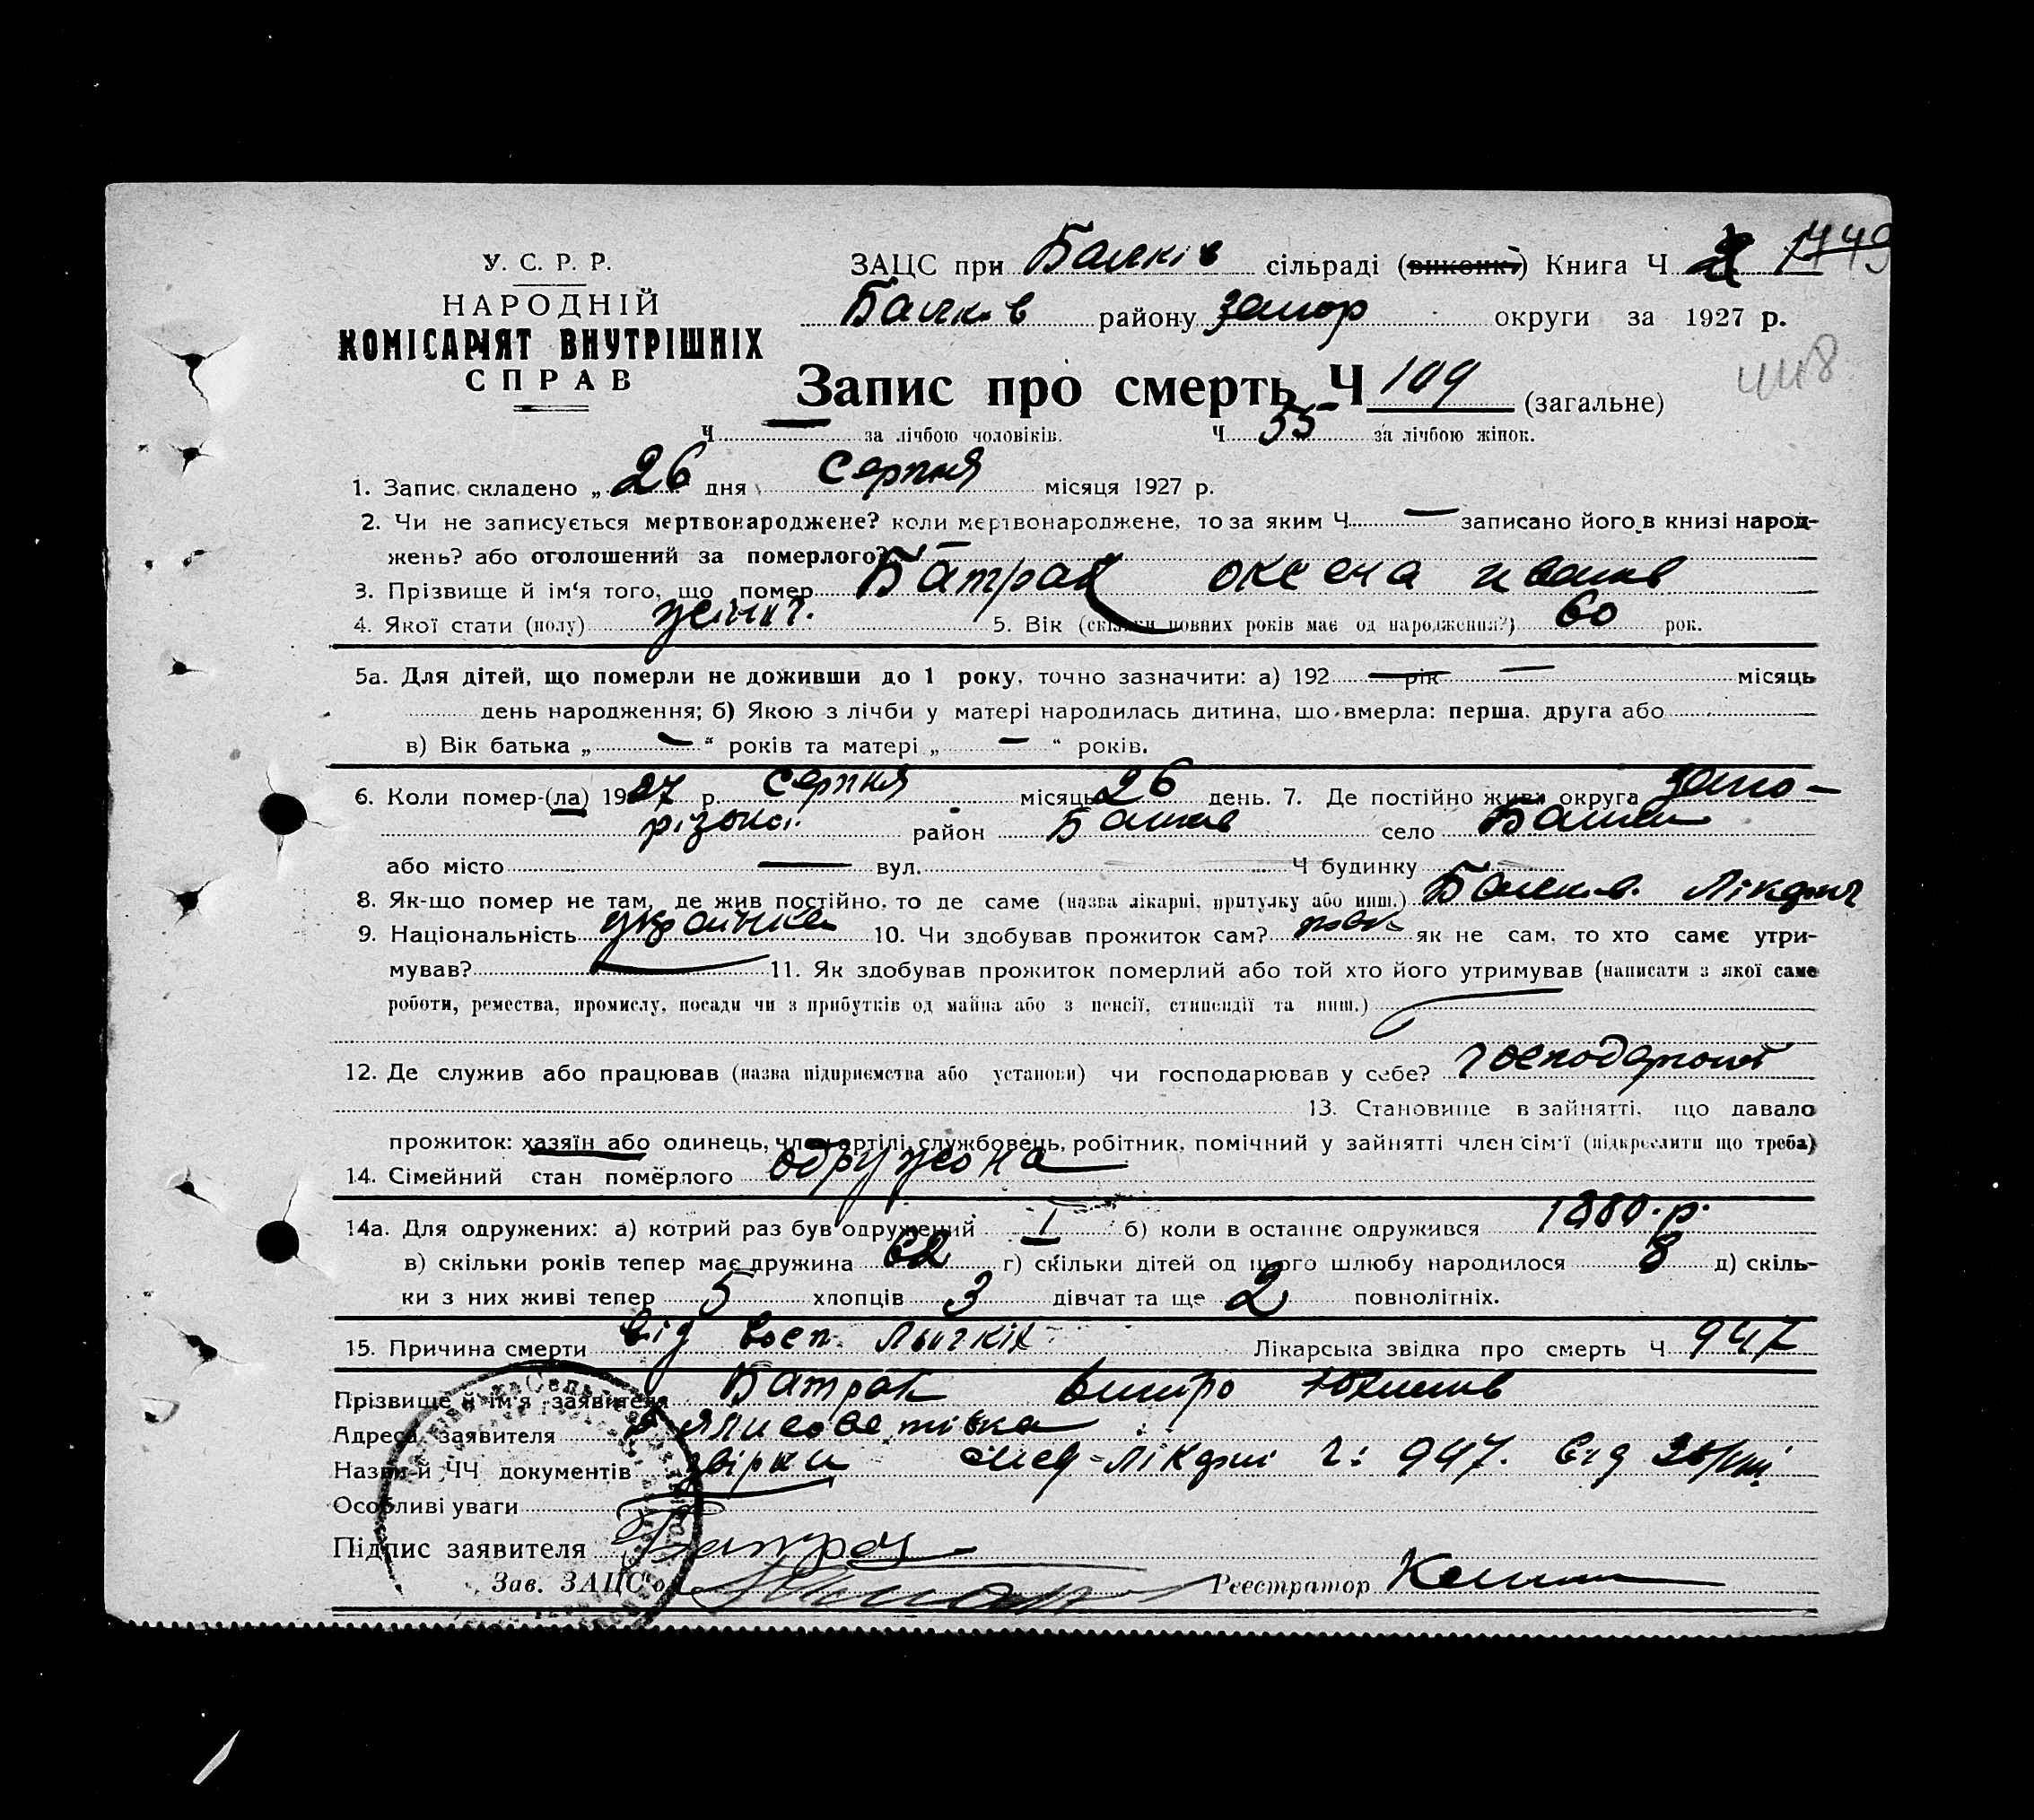 У. С. Р. Р.
НАРОДНІЙ
КОМІСАРІЯТ ВНУТРІШНІХ
СПРАВ
ЗАЦС при Балків сільраді (виконкі) Книга Ч
Балків району Запор округи за 1927 р.
Запис про смерть Ч 109 (загальне)
Ч — за лічбою чоловіків. Ч 55 за лічбою жінок.
1. Запис складено „ 26 дня Серпня місяця 1927 р.
2. Чи не записується мертвонароджене? коли мертвонароджене, то за яким Ч — записано його в книзі народ-
жень? або оголошений за померлого? —
3. Прізвище й ім'я того, що помер Батрак Оксена Иванів
4. Якої стати (полу) жіноч. 5. Вік (скільки повних років має од народження?) 60 рок.
5а. Для дітей, що померли не доживши до 1 року, точно зазначити: а) 192 — рік — місяць
день народження; б) Якою з лічби у матері народилась дитина, що вмерла: перша, друга або
в) Вік батька „ — “ років та матері „ — “ років.
6. Коли помер-(ла) 1927 р. Серпня місяць 26 день. 7. Де постійно жив: округа Запо-
різька район Балків село Балки
або місто — вул. Ч будинку
8. Як-що помер не там, де жив постійно, то де саме (назва лікарні, притулку або инш.) Балків. Лікарні
9. Національність українка 10. Чи здобував прожиток сам? так як не сам, то хто саме утри-
мував? — 11. Як здобував прожиток померлий або той хто його утримував (написати з якої саме
роботи, ремества, промислу, посади чи з прибутків од майна або з пенсії, стипендії та инш.)
12. Де служив або працював (назва підприємства або установи) чи господарював у себе?
13. Становище в зайнятті, що давало
прожиток: хазяїн або одинець, член артілі, службовець, робітник, помічний у зайнятті член сім'ї (підкреслити що треба)
14. Сімейний стан померлого одружона
14а. Для одружених: а) котрий раз був одружений I б) коли в останнє одружився 1880. р.
в) скільки років тепер має дружина 62 г) скільки дітей од цього шлюбу народилося 8 д) скіль-
ки з них живі тепер 5 хлопців 3 дівчат та ще 2 повнолітніх.
15. Причина смерти від восп. Льогкіх Лікарська звідка про смерть Ч 947
Прізвище й ім'я заявителя Батрак
Адреса заявителя
Назви й ЧЧ документів Ч: 947. від
Особливі уваги
Підпис заявителя Батрак
Зав. ЗАЦС'ом Реєстратор